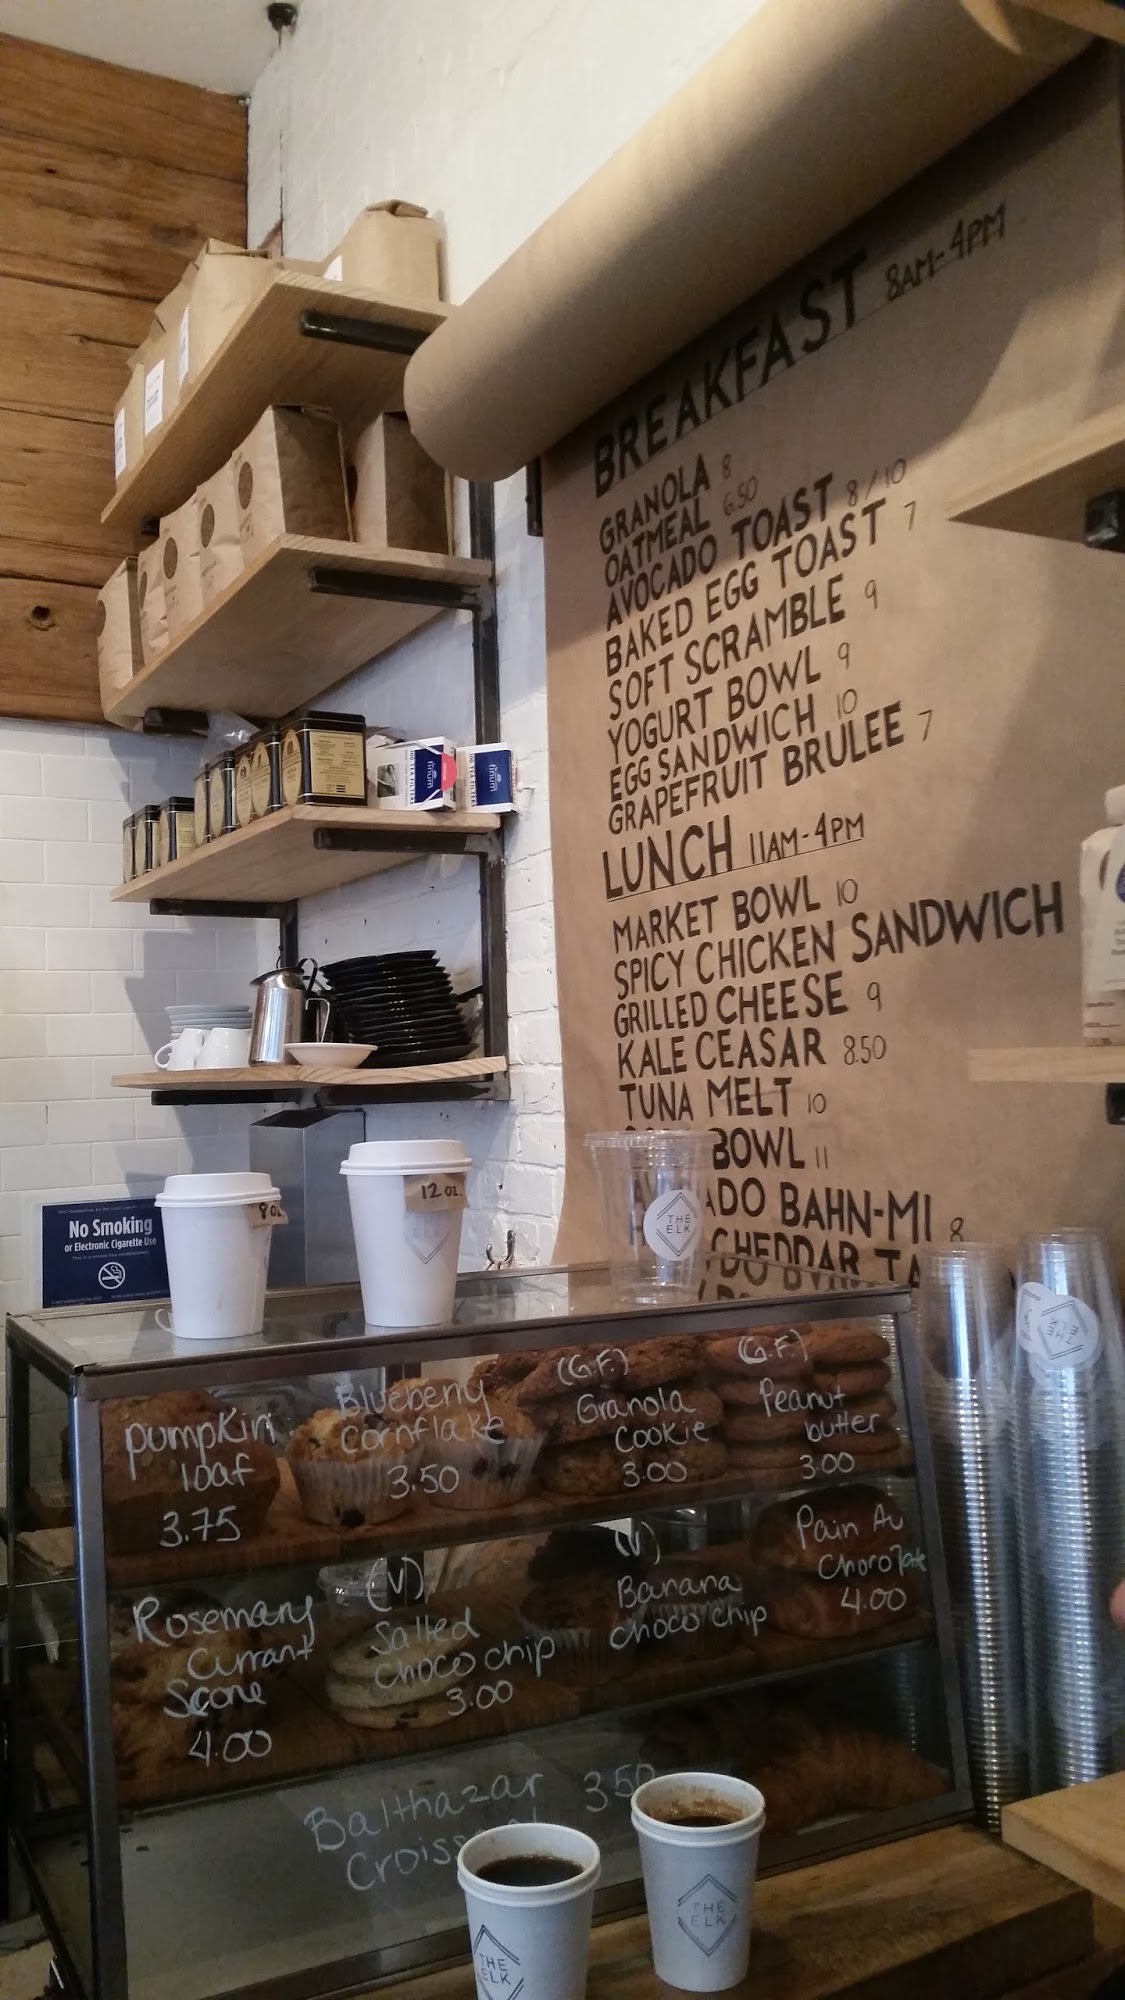 BREAKFAST 8AM-4PM
GRANOLA 8
OATMEAL 6.50
AVOCADO TOAST 8/10
BAKED EGG TOAST 7
SOFT SCRAMBLE 9
YOGURT BOWL 9
EGG SANDWICH 10
GRAPEFRUIT BRULEE 7
LUNCH 11AM-4PM
MARKET BOWL 10
SPICY CHICKEN SANDWICH
GRILLED CHEESE 9
KALE CEASAR 8.50
TUNA MELT 10
BOWL 11
BAHN-MI 8
CHEDDAR
finum
100 TEA FILTERS
finum
100 TEA FILTERS
No Smoking
or Electronic Cigarette Use
8 oz.
12 oz.
THE
ELK
pumpkin
loaf
3.75
Blueberry
cornflake
3.50
(G.F.)
Granola
cookie
3.00
(G.F.)
Peanut
butter
3.00
Rosemary
Currant
Scone
4.00
(V)
Salted
choco chip
3.00
(V)
Banana
choco chip
Pain Au
Chocolate
4.00
Balthazar 3.50
THE
ELK
THE
ELK